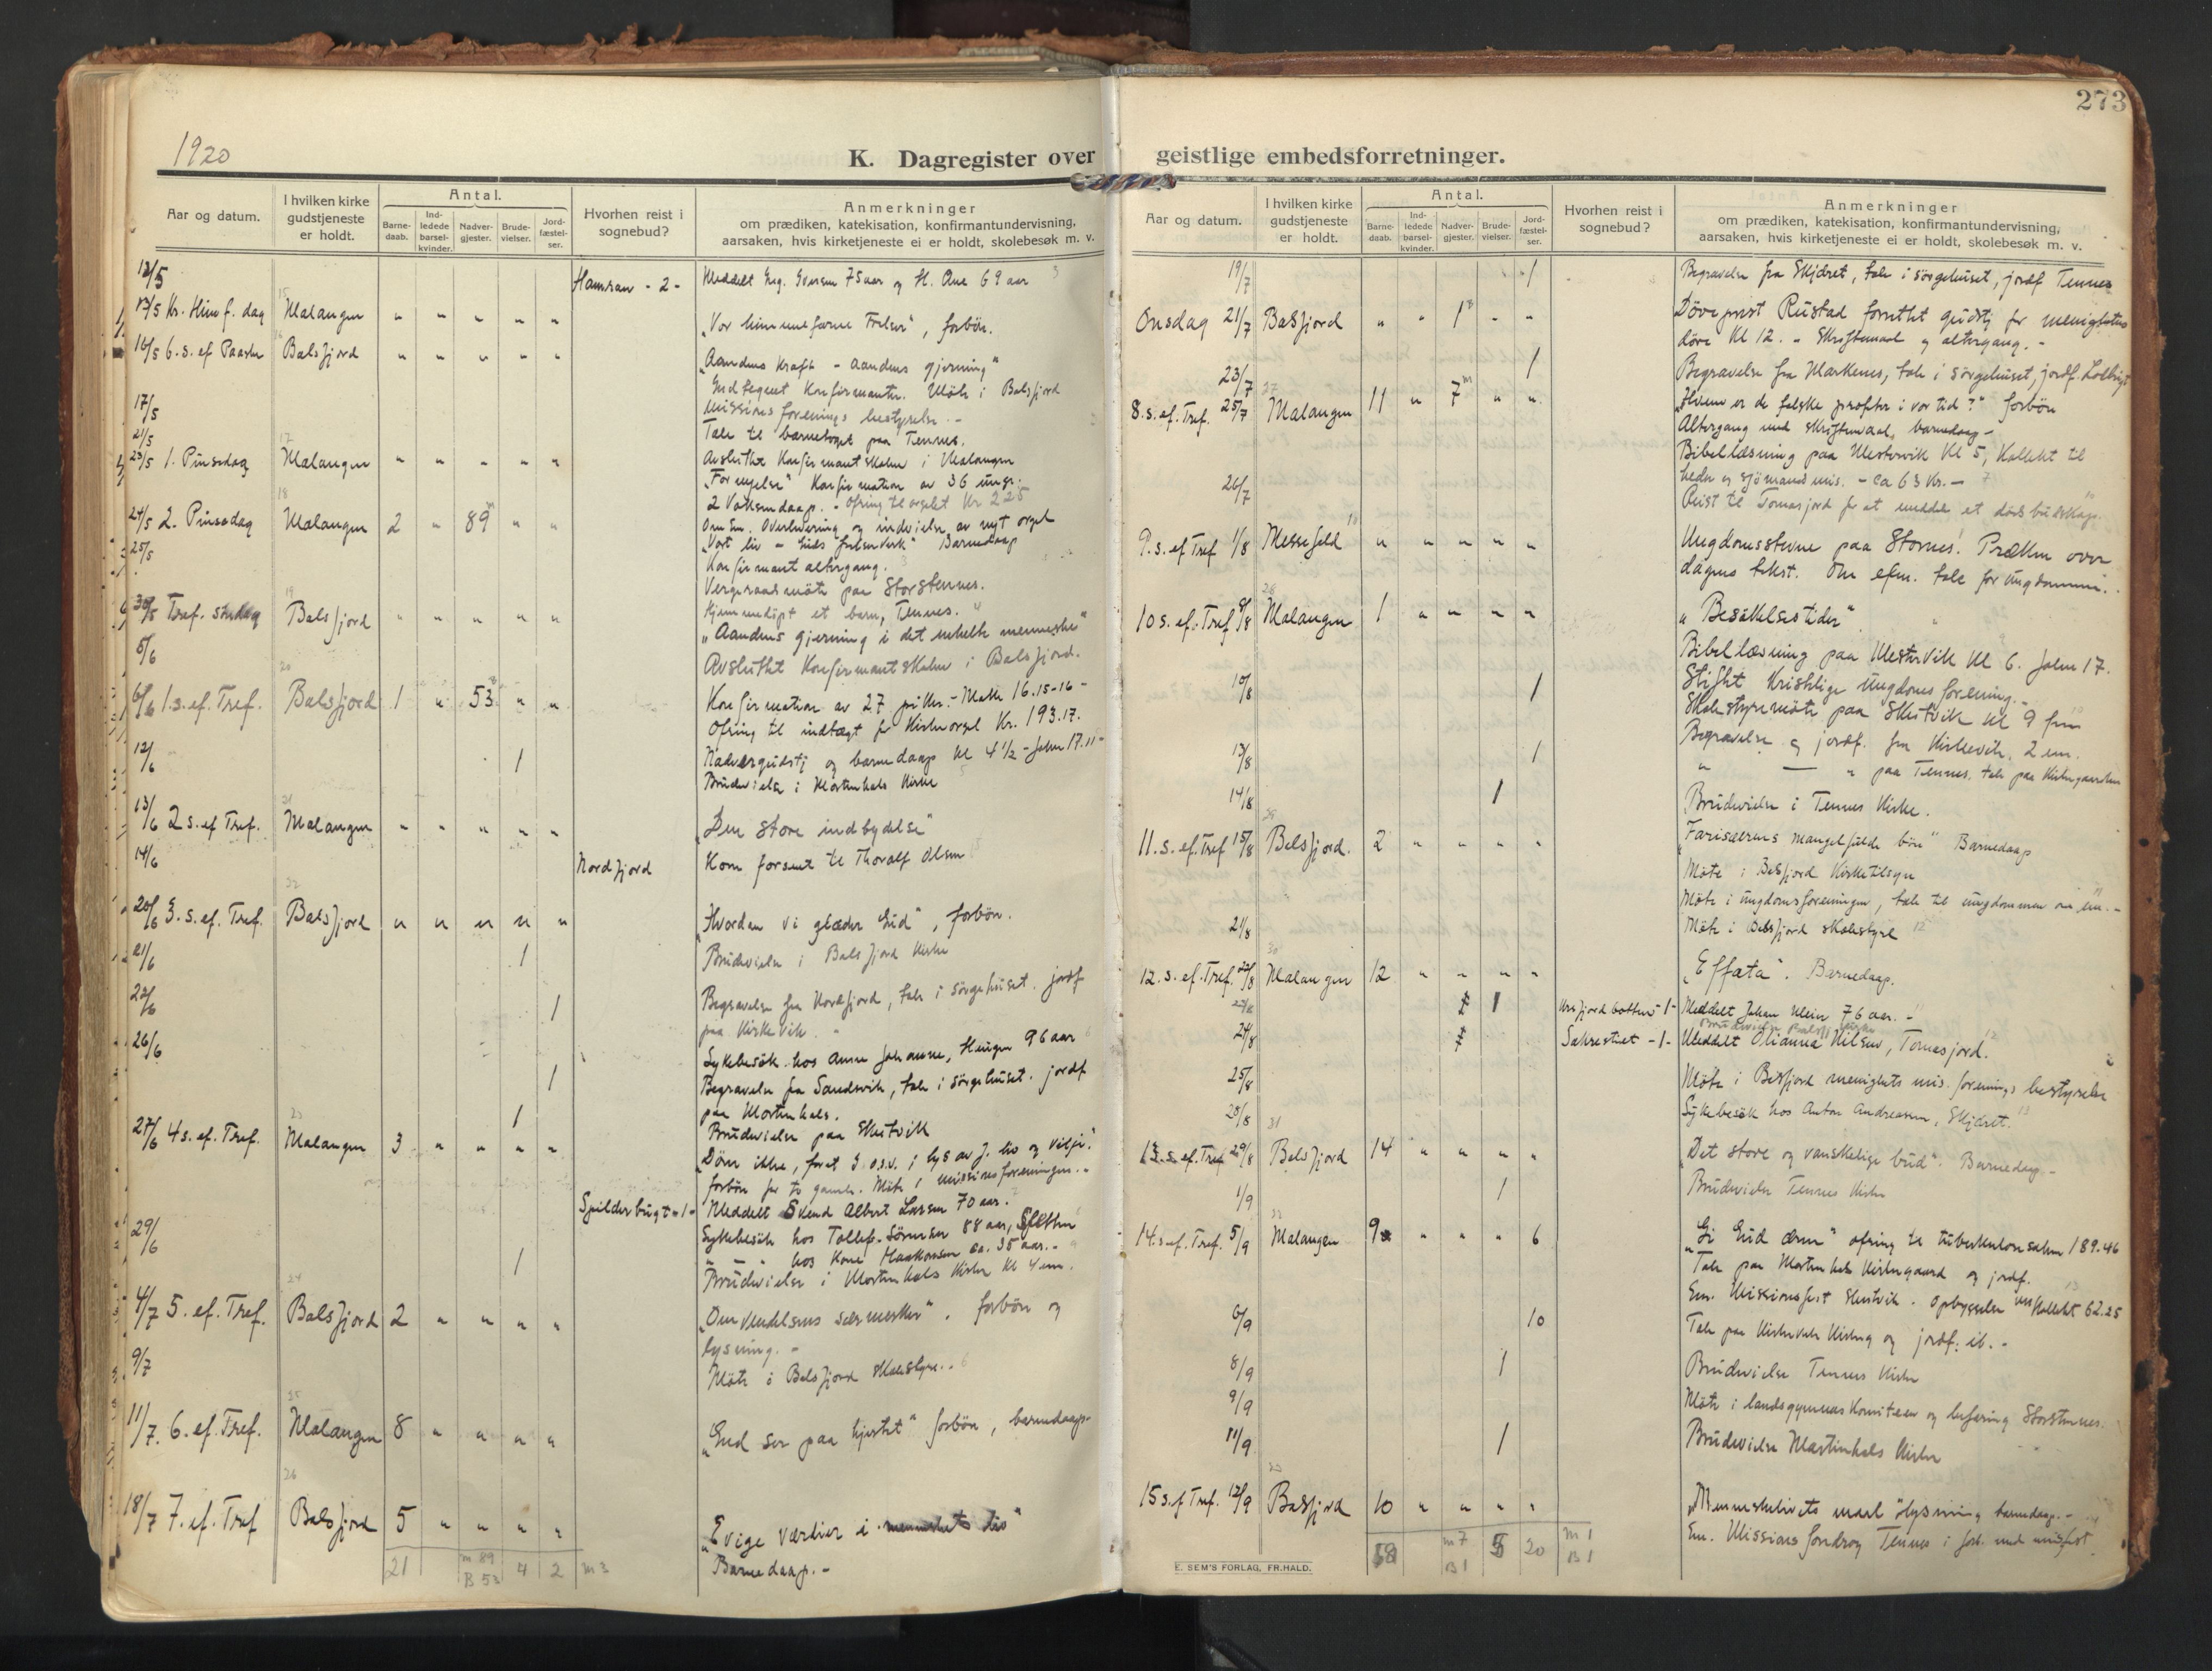 273
1920
K. Dagregister over geistlige embedsforretninger.
Aar og datum.
I hvilken kirke gudstjeneste er holdt.
Antal.
Barne-daab.
Ind-ledede barsel-kvinder.
Nadver-gjester.
Brude-vielser.
Jord-fæstel-ser.
Hvorhen reist i sognebud?
Anmerkninger
om prædiken, katekisation, konfirmantundervisning,
aarsaken, hvis kirketjeneste ei er holdt, skolebesøk m. v.
12/5 - 2 - Meddelt 75 aar og H. Ane 69 aar
13/5 Kr. Himf. dag Malangen " " " " "
"Vor himmelfarne Frelser", forbön.
16/5 6. s. ef Paaske Balsfjord " " " " "
"Aandens kraft - aandens gjerning"
Indtegnet Konfirmanter. Möte i Balsfjord
missionsforenings bestyrelse. -
17/5 Tale til barnetoget paa Tennes.
21/5 Avsluttet Konfirmantskolen i Malangen
23/5 1. Pinsedag Malangen " " " " "
"Fornyelse" Konfirmation av 36 unge.
2 Voksendaap. - Ofring til orgelet Kr 225
24/5 2. Pinsedag Malangen 2 " 89 " "
Overlevering og indvielse av nyt orgel
"Vort liv - Guds frelserverk" Barnedaap
Konfirmant altergang.
25/5 Vergeraadsmöte paa Storstennes.
Hjemmedöpt et barn, Tennes.
30/5 Tref. söndag Balsfjord " " " " "
"Aandens gjerning i det enkelte menneske"
5/6 Avsluttet Konfirmantskolen i Balsfjord.
6/6 1. s. ef. Tref. Balsfjord 1 " 53 " "
Konfirmation av 27 piker. - Matth 16.15-16 -
Ofring til indtægt for Kirkeorgel Kr. 193.17.
Nadvergudstj og barnedaap kl 4 1/2 - Johs 17.11 -
12/6 1 Brudevielse i Mortenhals Kirke
13/6 2 s. ef Tref. Malangen " " " " "
"Den store indbydelse"
14/6 Nordfjord Kom forsent til Thoralf Olsen
20/6 3. s. ef. Tref. Balsfjord " " " " "
"Hvordan vi glæder Gud", forbön.
21/6 1 Brudevielse i Balsfjord Kirke
22/6 1 Begravelse fra Nordfjord, tale i sörgehuset. jordf
paa Kirkevik.
26/6 Sykebesök hos Anne Johanne, 96 aar
1 Begravelse fra Sandsvik, tale i sörgehuset. jordf
paa Mortenhals.
1 Brudevielse paa Skutvik
27/6 4 s. ef. Tref. Malangen 3 " " " "
"Döm ikke, forat I o.s.v. i lys av J. liv og vilje."
forbön for to gamle. Möte i missionsforeningen. -
Spilderbugt - 1 - Meddelt Svend Albert Larsen 70 aar.
29/6 Sykebesök hos Tollef Sörensen 88 aar, Sletten
" - " hos Kone Haakonsen ca. 35 aar. -
1 Brudevielse i Mortenhals Kirke Kl 4 em.
4/7 5. ef. Tref. Balsfjord 2 " " " "
"Omvendelsens særmerker". forbön og
lysning. -
9/7 Möte i Balsfjord skolestyre. -
11/7. 6. ef. Tref. Malangen 8 " " " "
"Gud ser paa hjertet" forbön, barnedaap -
18/7 7. ef. Tref Balsfjord 5 " " " "
"Evige værdier i menneskets liv"
Barnedaap. -
21 m 89 B 53 4 2 m 3
Aar og datum.
I hvilken kirke gudstjeneste er holdt.
Antal.
Barne-daab.
Ind-ledede barsel-kvinder.
Nadver-gjester.
Brude-vielser.
Jord-fæstel-ser.
Hvorhen reist i sognebud?
Anmerkninger
om prædiken, katekisation, konfirmantundervisning,
aarsaken, hvis kirketjeneste ei er holdt, skolebesøk m. v.
19/7 1 Begravelse fra Skjåret, tale i sörgehuset, jordf Tennes
Onsdag 21/7 Balsfjord " " 1 " "
Dövepræst Rustad forrettet gudstj for menighetens
döve kl 12. - Skriftemaal og altergang. -
23/7 1 Begravelse fra Markenes, tale i sörgehuset, jordf.
8. s. ef. Tref. 25/7 Malangen 11 " 7 " "
"Hvem er de falske profeter i vor tid?" forbön
Altergang med skriftemaal, barnedaap -
Bibellæsning paa Mestervik Kl 5, Kollekt til
og sjömandsmis. - ca 63 Kr. -
26/7 Reist til Tomasjord for at meddele et dödsbudskap.
9. s. ef Tref 1/8 Messefald " " " " "
Ungdomsstevne paa Stornes! Præken over
dagens tekst. Om efm. tale for ungdommen.
10 s. ef. Tref 8/8 Malangen 1 " " " "
"Besökelsestider"
Bibellæsning paa Mestervik kl 6. Johs 17.
Stiftet Kristelige ungdomsforening. -
10/8 1 Skolestyremöte paa Skutvik kl 9 fm
Begravelse og jordf. fra Kirkevik. 2 em.
13/8 1 " — " paa Tennes. tale paa Kirkegaarden
14/8 1 Brudevielse i Tennes Kirke.
11. s. ef. Tref 15/8 Balsfjord. 2 " " " "
"Farisæerens mangelfulde bön" Barnedaap
Möte i Balsfjord Kirketilsyn
Möte i ungdomsforeningen, tale til ungdommen
21/8 Möte i Balsfjord skolestyre
12. s. ef. Tref. 22/8 Malangen 12 " " " "
"Effata". Barnedaap.
23/8 1 - 1 - Meddelt Johan 76 aar. -
24/8 - 1 - Meddelt Olianna Nilsen, Tomasjord.
25/8 Möte i Balsfjord menighets mis. forenings bestyrelse
28/8 Sykebesök hos Anton Andreassen, Skjåret.
13. s. ef. Tref 29/8 Balsfjord 14 " " " "
"Det store og vanskelige bud". Barnedaap. -
1/9 1 Brudevielse Tennes Kirke
14. s. ef. Tref. 5/9 Malangen 9 " " " 6
"Gi Gud æren" ofring til tuberkulosesaken 189.46
Tale paa Mortenhals Kirkegaard og jordf.
Em. Missionsfest Skutvik. Opbyggelse Kollekt 62.25
6/9 10 Tale paa Kirkevik Kirkeg og jordf. ib. -
8/9 1 Brudevielse Tennes Kirke
9/9 Möte i landsgymnas Komiteen og befaring Storstennes.
11/9 1 Brudevielse Mortenhals Kirke
15 s. ef Tref. 12/9 Balsfjord 10 " " " "
"Menneskelivets maal" lysning barnedaap. -
Em. Missionsforedrag Tennes i forb. med
m 7 B 1 5 20 m 1 B 1
E. SEM'S FORLAG, FR.HALD.